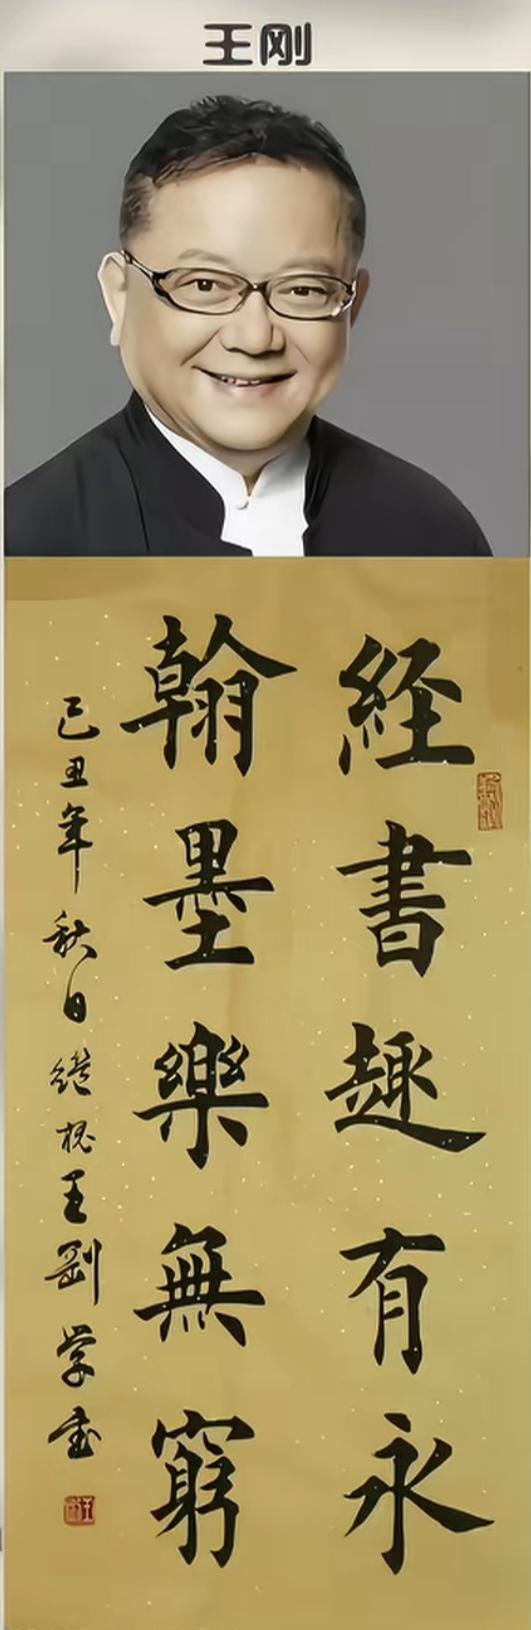 王刚
経書趣有永
翰墨樂無窮
己丑年秋日繼槐王剛学书